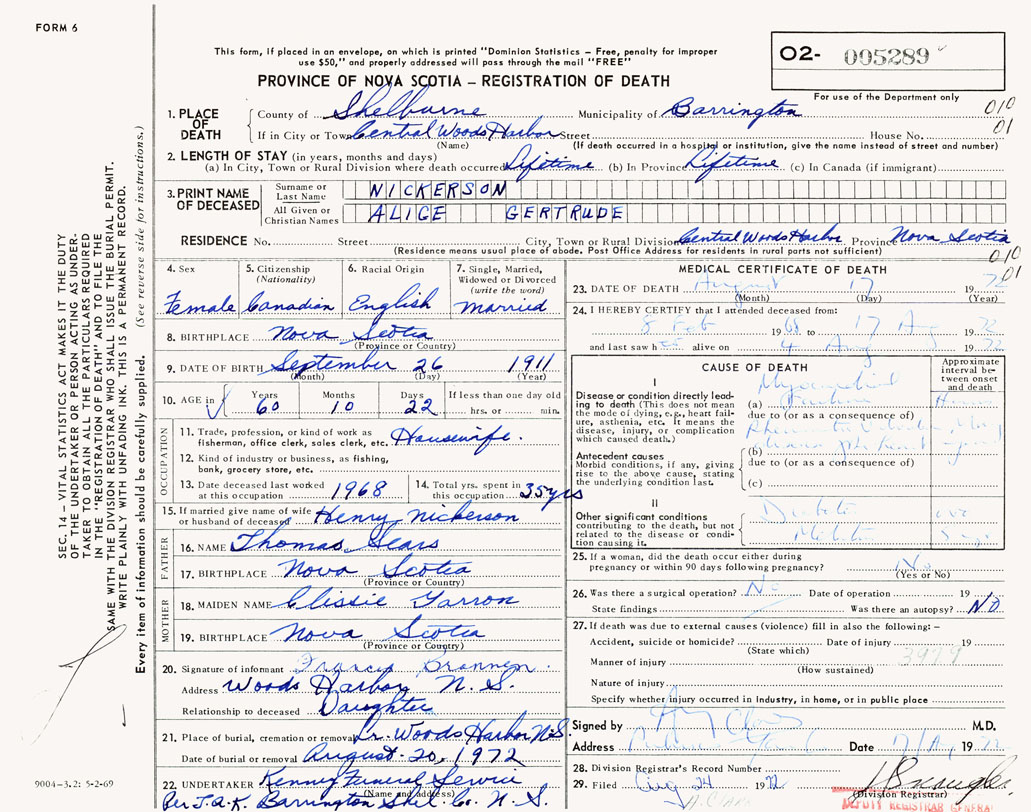 FORM 6
This form, if placed in an envelope, on which is printed "Dominion Statistics – Free, penalty for improper
use $50," and properly addressed will pass through the mail "FREE"
PROVINCE OF NOVA SCOTIA – REGISTRATION OF DEATH
O2- 005289
For use of the Department only
010
01
1. PLACE OF DEATH
County of Shelburne Municipality of Barrington
If in City or Town Central Woods Harbor Street House No.
(Name) (If death occurred in a hospital or institution, give the name instead of street and number)
2. LENGTH OF STAY (in years, months and days)
(a) In City, Town or Rural Division where death occurred Lifetime (b) In Province Lifetime (c) In Canada (if immigrant)
3. PRINT NAME OF DECEASED
Surname or Last Name NICKERSON
All Given or Christian Names ALICE GERTRUDE
RESIDENCE No. Street City, Town or Rural Division Central Woods Harbor Province Nova Scotia
(Residence means usual place of abode. Post Office Address for residents in rural parts not sufficient)
010
01
4. Sex Female
5. Citizenship (Nationality) Canadian
6. Racial Origin English
7. Single, Married, Widowed or Divorced (write the word) Married
8. BIRTHPLACE Nova Scotia
(Province or Country)
9. DATE OF BIRTH September 26 1911
(Month) (Day) (Year)
10. AGE in Years 60 Months 10 Days 22 If less than one day old hrs. or min.
OCCUPATION
11. Trade, profession, or kind of work as fisherman, office clerk, sales clerk, etc. Housewife.
12. Kind of industry or business, as fishing, bank, grocery store, etc.
13. Date deceased last worked at this occupation 1968
14. Total yrs. spent in this occupation 35 yrs
15. If married give name of wife or husband of deceased Henry Nickerson
FATHER
16. NAME Thomas Sears
17. BIRTHPLACE Nova Scotia
(Province or Country)
MOTHER
18. MAIDEN NAME
19. BIRTHPLACE Nova Scotia
(Province or Country)
20. Signature of informant Francis Brannen
Address Woods Harbor N. S.
Relationship to deceased Daughter
21. Place of burial, cremation or removal Lr. Woods Harbor N.S.
Date of burial or removal August 20, 1972
22. UNDERTAKER Kenny Funeral Service
(Name and address)
Per J.A.K. Barrington Shel. Co. N. S.
MEDICAL CERTIFICATE OF DEATH
23. DATE OF DEATH August 17 1972
(Month) (Day) (Year)
24. I HEREBY CERTIFY that I attended deceased from:
8 Feb 1968 to 17 Aug 1972
and last saw her alive on 4 Aug 1972
CAUSE OF DEATH
Approximate interval between onset and death
I
Disease or condition directly leading to death (This does not mean the mode of dying, e.g., heart failure, asthenia, etc. It means the disease, injury, or complication which caused death.)
(a) Myocardial Failure
due to (or as a consequence of)
Antecedent causes
Morbid conditions, if any, giving rise to the above cause, stating the underlying condition last.
(b)
due to (or as a consequence of)
(c)
II
Other significant conditions contributing to the death, but not related to the disease or condition causing it.
Diabetes
25. If a woman, did the death occur either during pregnancy or within 90 days following pregnancy? No
(Yes or No)
26. Was there a surgical operation? No Date of operation 19
State findings Was there an autopsy? NO
27. If death was due to external causes (violence) fill in also the following: –
Accident, suicide or homicide? Date of injury 19
(State which)
Manner of injury
(How sustained)
Nature of injury
Specify whether injury occurred in Industry, in home, or in public place
Signed by M.D.
Address Date 17 Aug 1972
28. Division Registrar's Record Number
29. Filed Aug 24 1972
A. CLARK
(Division Registrar)
DEPUTY REGISTRAR GENERAL
SEC. 14 – VITAL STATISTICS ACT MAKES IT THE DUTY
OF THE UNDERTAKER OR PERSON ACTING AS UNDER-
TAKER TO OBTAIN ALL THE PARTICULARS REQUIRED
IN THE "REGISTRATION OF DEATH" AND TO FILE THE
SAME WITH THE DIVISION REGISTRAR WHO SHALL ISSUE THE BURIAL PERMIT.
WRITE PLAINLY WITH UNFADING INK. THIS IS A PERMANENT RECORD.
Every item of information should be carefully supplied. (See reverse side for instructions.)
9004–3.2: 5-2-69